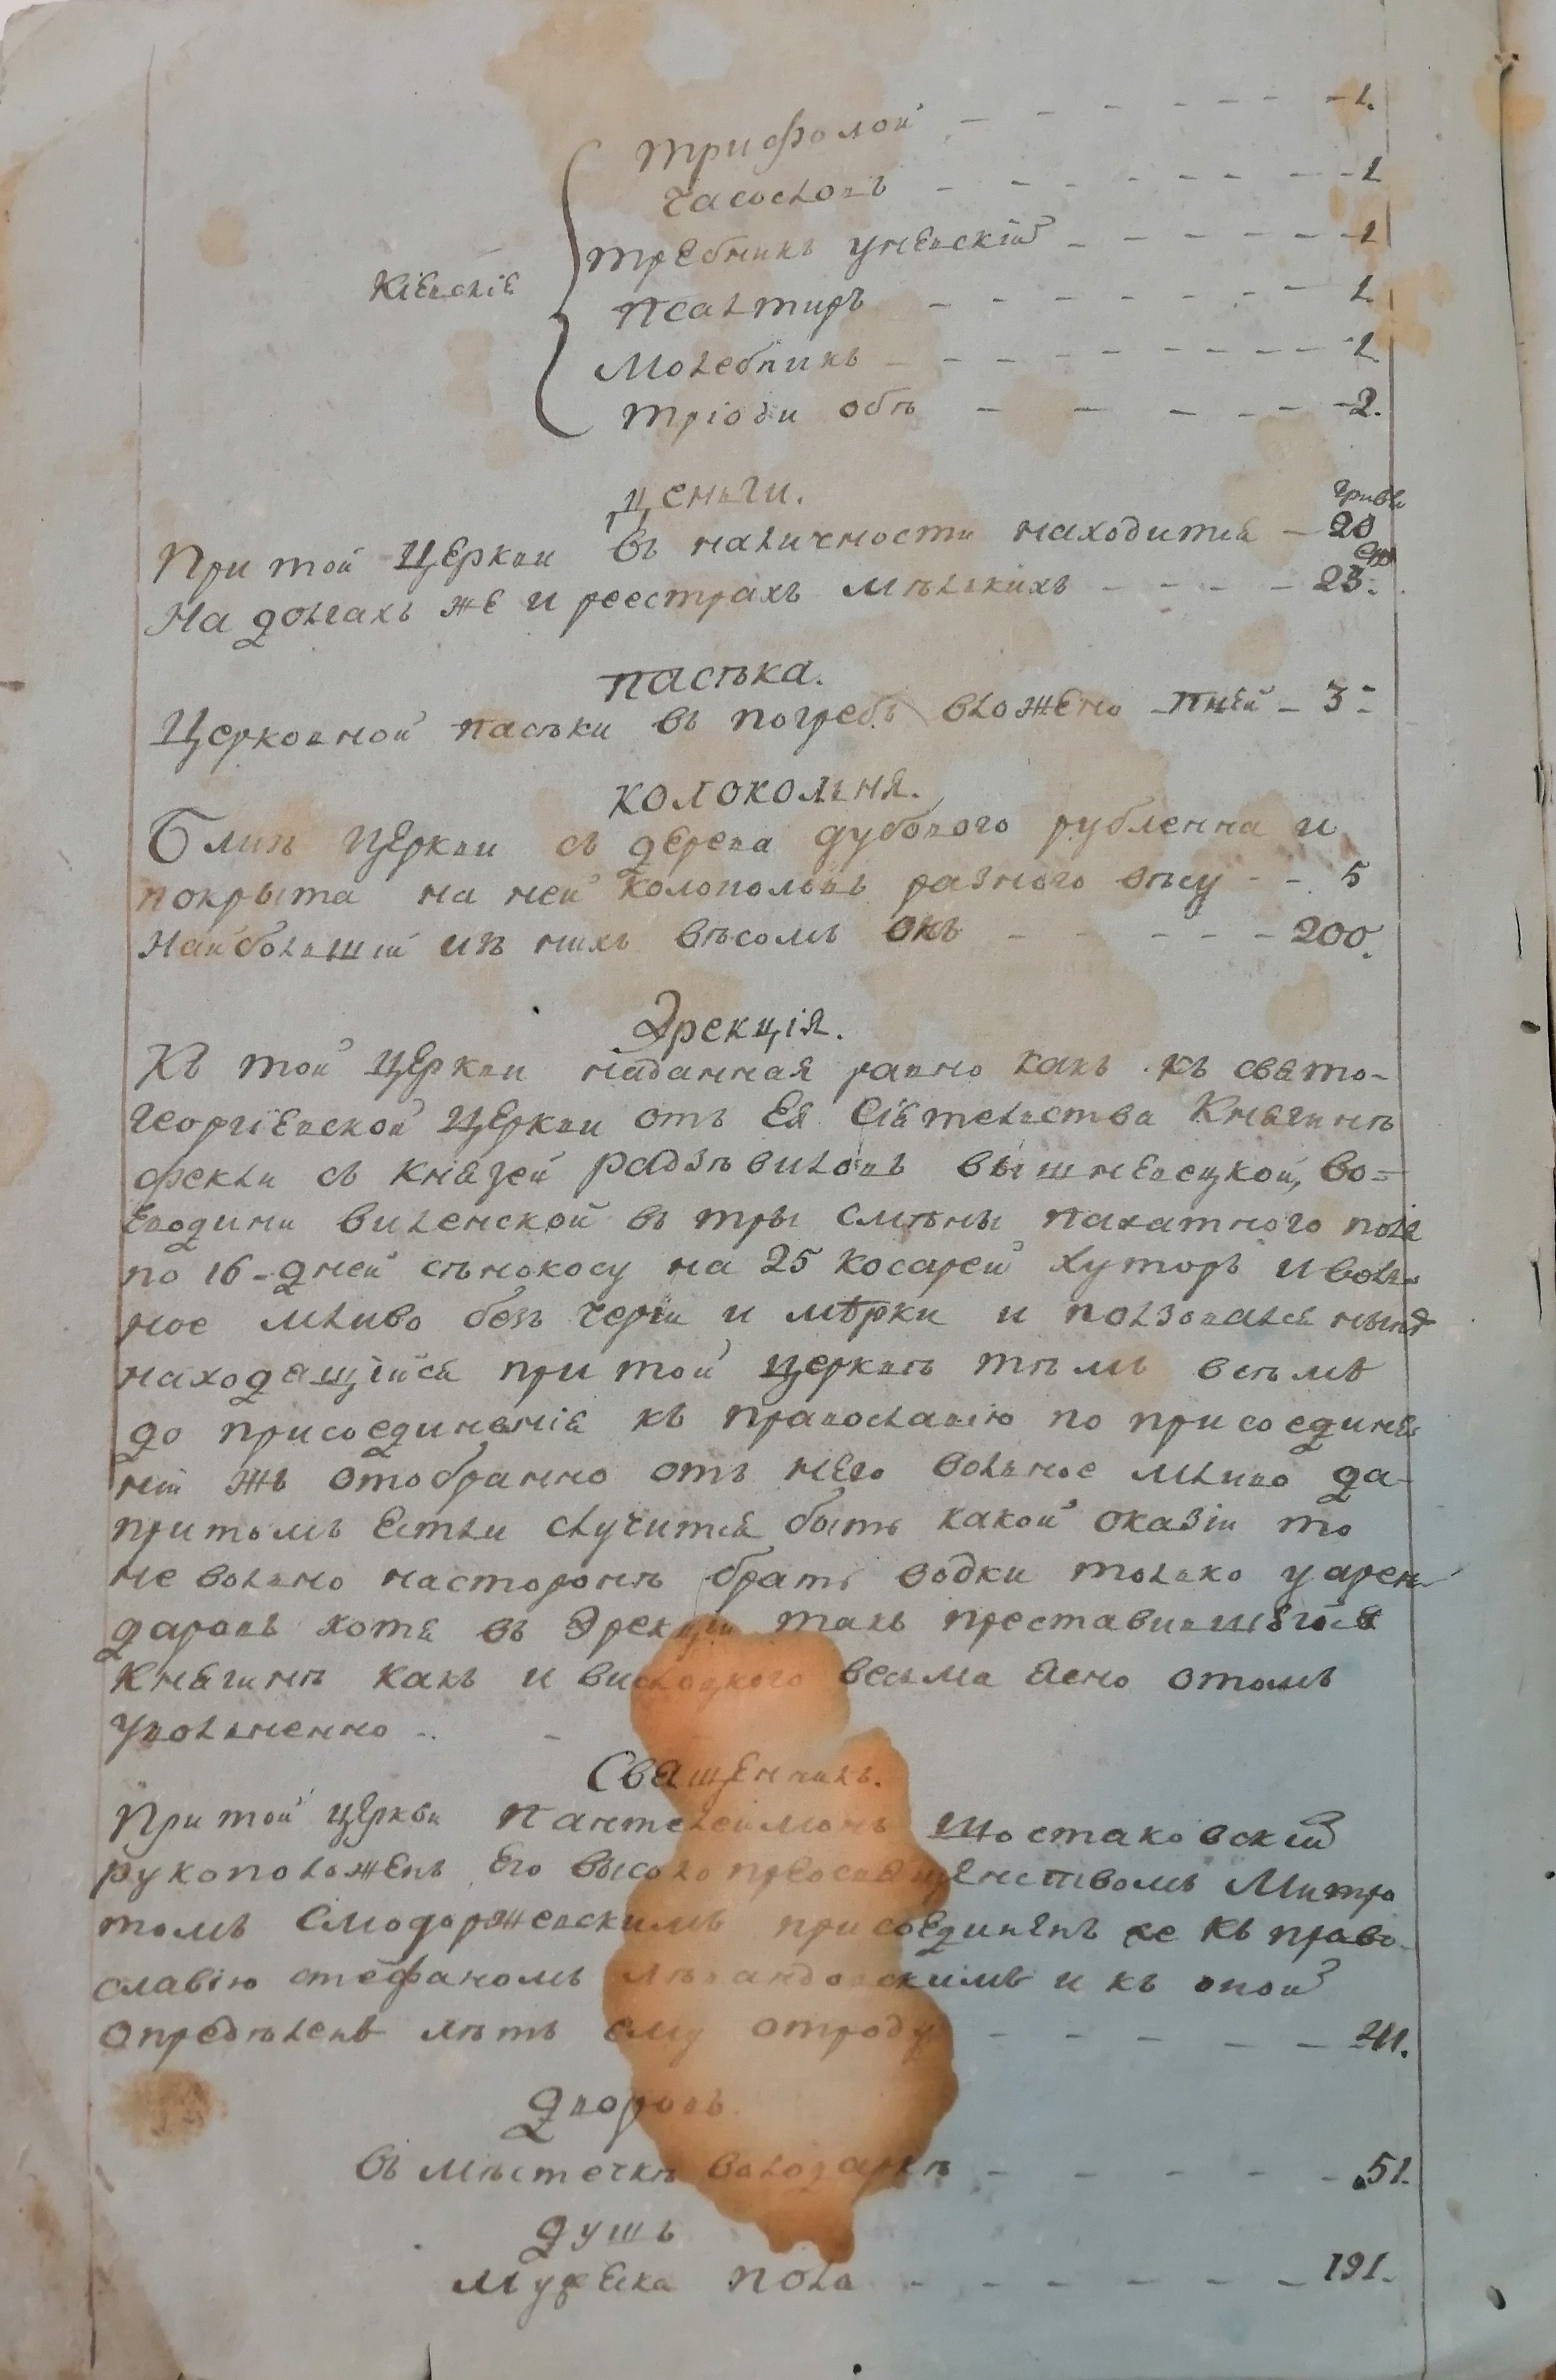 Трифолой - - - - - - - 1.
Часословъ - - - - - - - 1
Кіевскіе
Требникъ уневскій - - - - - - 1
Псалтирь - - - - - - - 1.
Молебникъ - - - - - - - - - 1.
Тріоди обѣ - - - - - - 2.
Деньги.
При той Церкви въ наличности находится - 20
На долгахъ же и реестрахъ - - - - 23.
Пасѣка.
Церковной пасѣки въ погребъ вложено пней - 3 -
Колокольня.
Близь Церкви съ дерева дубового рубленна и
покрыта на ней колоколовъ разного вѣсу - - 5
Наибольшій изъ нихъ вѣсомъ окъ - - - - - 200.
Эрекція.
Къ той Церкви наданная равно какъ къ свято-
георгіевской Церкви отъ Ея Сіятельства Княгинѣ
феклы съ Князей радзѣвиловъ вышневецкой, во-
еводини виленской въ тры смѣны пахатного поля
по 16-дней сѣнокосу на 25 косарей хуторъ и воль-
ное мливо безъ черги и мѣрки и ползовался нынѣ
находящійся при той церквѣ тѣмъ всѣмъ
до присоединенія къ православію по присоедине-
ніи жъ отобранно отъ него вольное мливо да-
притомъ Естли случится быть какой оказіи то
не вольно насторонѣ брать водки только уарен-
даровъ хотя въ Эрекціи такъ преставившейся
Княгинѣ какъ и висоцкого весьма ясно отомъ
уволненно -.
Священникъ.
При той Церкви Пантелеймонъ Шостаковскій
рукоположенъ Его высокопреосвященствомъ Митро
томъ Смодоржевскимъ присоединенъ же къ право-
славію стефаномъ Левандовскимъ и къ оной
опредѣленъ лѣтъ ему отроду - - - - - 41.
Дворовъ.
Въ мѣстечкѣ володаркѣ - - - - - 51.
Душъ
Мужеска пола - - - - - - 191.